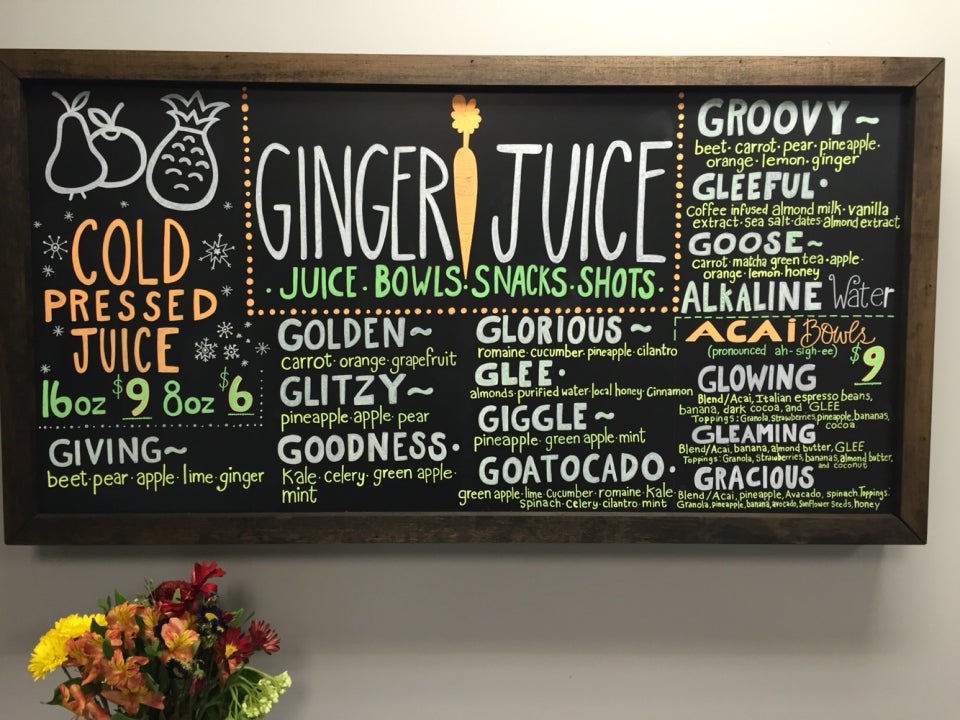 GINGER JUICE
· JUICE · BOWLS · SNACKS · SHOTS ·
COLD
PRESSED
JUICE
16oz $9 8oz $6
GIVING~
beet · pear · apple · lime · ginger
GOLDEN~
carrot · orange · grapefruit
GLITZY~
pineapple · apple · pear
GOODNESS·
Kale · celery · green apple ·
mint
GLORIOUS~
romaine · cucumber · pineapple · cilantro
GLEE·
almonds · purified water · local honey · Cinnamon
GIGGLE~
pineapple · green apple · mint
GOATOCADO·
green apple · lime · cucumber · romaine · Kale ·
Spinach · celery · cilantro · mint
GROOVY~
beet · carrot · pear · pineapple ·
orange · lemon · ginger
GLEEFUL·
Coffee infused almond milk · vanilla
extract · sea salt · dates · almond extract
GOOSE~
carrot · matcha green tea · apple ·
orange · lemon · honey
ALKALINE Water
ACAI Bowls
(pronounced ah-sigh-ee) $9
GLOWING
Blend/Acai, Italian espresso beans,
banana, dark cocoa, and GLEE
Toppings: Granola, strawberries, pineapple, bananas,
cocoa
GLEAMING
Blend/Acai, banana, almond butter, GLEE
Toppings: Granola, Strawberries, bananas, almond butter,
and coconut
GRACIOUS
Blend/Acai, pineapple, Avocado, spinach Toppings:
Granola, pineapple, banana, avocado, Sunflower Seeds, honey